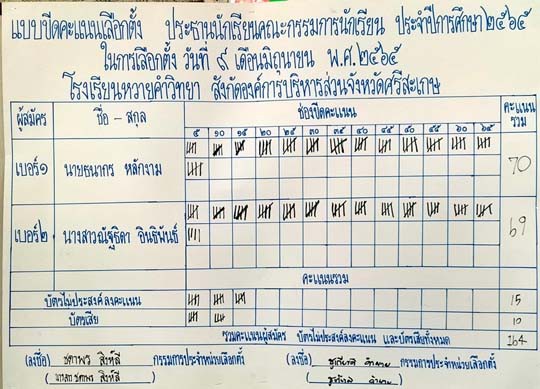 แบบขีดคะแนนเลือกตั้ง ประธานนักเรียนคณะกรรมการนักเรียน ประจำปีการศึกษา๒๕๖๕
ในการเลือกตั้ง วันที่ ๙ เดือนมิถุนายน พ.ศ.๒๕๖๕
โรงเรียนหวายคำวิทยา สังกัดองค์การบริหารส่วนจังหวัดศรีสะเกษ
ผู้สมัคร ชื่อ - สกุล ช่องขีดคะแนน คะแนนรวม
๕ ๑๐ ๑๕ ๒๐ ๒๕ ๓๐ ๓๕ ๔๐ ๔๕ ๕๐ ๕๕ ๖๐ ๖๕
เบอร์๑ นายธนากร หลักงาม 70
เบอร์๒ นางสาวณัฐธิดา อินธิพันธ์ 69
คะแนนรวม
บัตรไม่ประสงค์ลงคะแนน 15
บัตรเสีย 10
รวมคะแนนผู้สมัคร บัตรไม่ประสงค์ลงคะแนน และบัตรเสียทั้งหมด 164
(ลงชื่อ) ชดาพร สิงห์สี กรรมการประจำหน่วยเลือกตั้ง (ลงชื่อ) กรรมการประจำหน่วยเลือกตั้ง
ชดาพร สิงห์สี